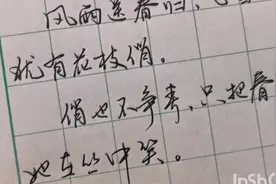 风雨送春归,飞
犹有花枝俏。
俏也不争春,只把春
她在丛中笑。
InSho